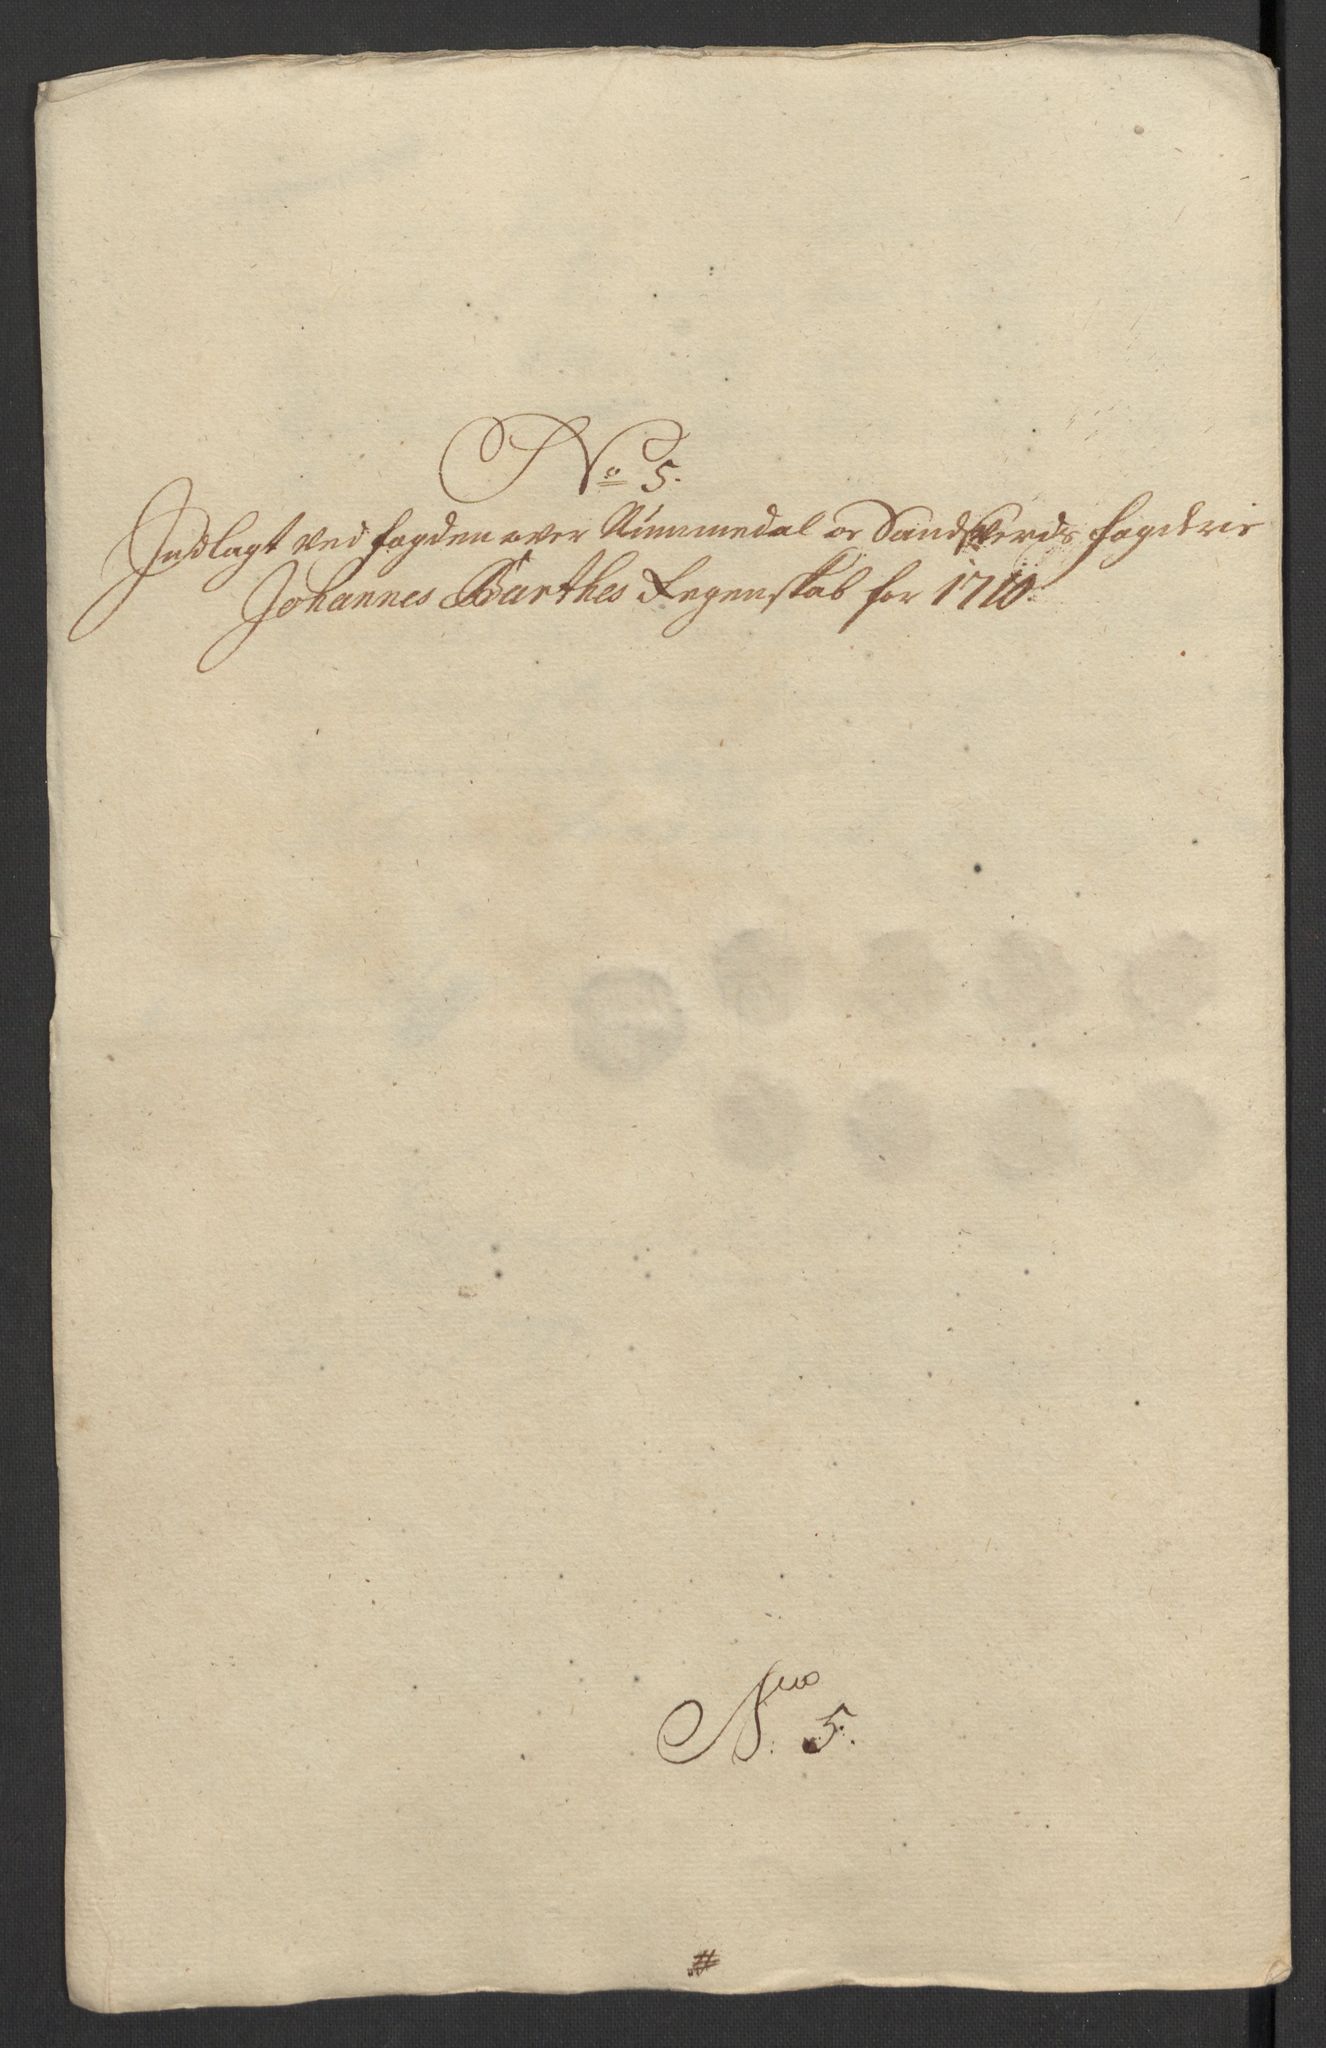 No 5.
Indlagt ved fogden over Nummedal oc Sandsverds fogderie
Johannes Barthes Regenskab for 1710.
Nuo 5.